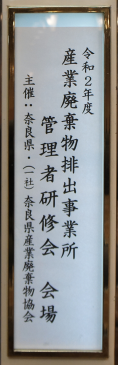 令和2年度
産業廃棄物排出事業所
管理者研修会 会場
主催：奈良県・(一社)奈良県産業廃棄物協会